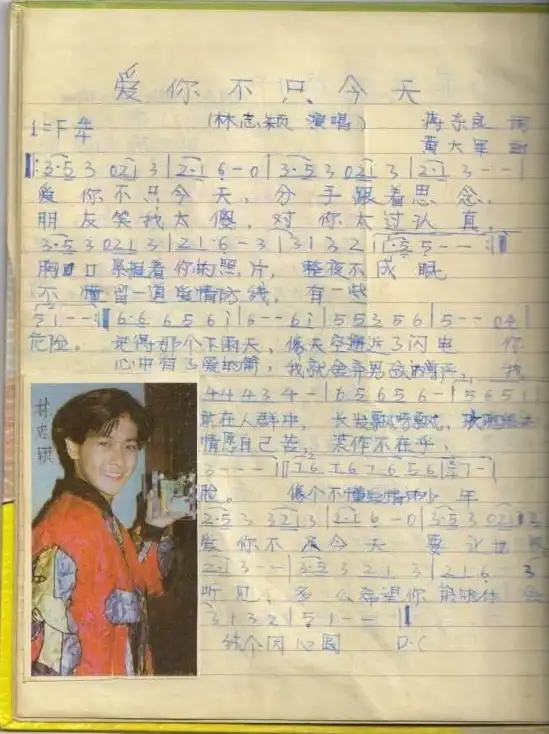 爱你不只今天
1=F 4/4 (林志颖 演唱) 蒋东良 词
黄大军 曲
3·5 3 021 3 | 2·1 6 - 0 | 3·5 3 021 3 | 2·1 3 - - |
爱你不只今天,分手跟着思念.
朋友笑我太傻,对你太过认真.
3·5 3 021 3 | 21·6 - 3 | 3 1 3 2 | 5 5 - - :|
胸口 紧握着你的照片,整夜不成眠
不懂留一道爱情防线,有一些
5 1 - - :| 6·6 6 5 6 i | 6 - - 6 i | 5 5 3 5 6 | 5 - - 04 |
危险。记得那个下雨天,像天空邂逅了闪电 你
心中有了爱的箭,我就舍弃男孩的尊严,我
林志颖
4 4 4 3 4 - | 6 5 6 5 6 - | 5 6 5 1
站在人群中,长发飘呀飘,
情愿自己苦,装作不在乎、
3 - - -
脸。像个不懂爱情的少年
2·5 3 321 3 | 2·1 6 - 0 | 3·5 3 021
爱你不只今天 要让世界
2·1 3 - - | 3·5 3 2 1 3 | 2 1 6 3
听见,多么希望你能体会
3 1 3 2 | 5 1 - -
结个同心圆 D·C